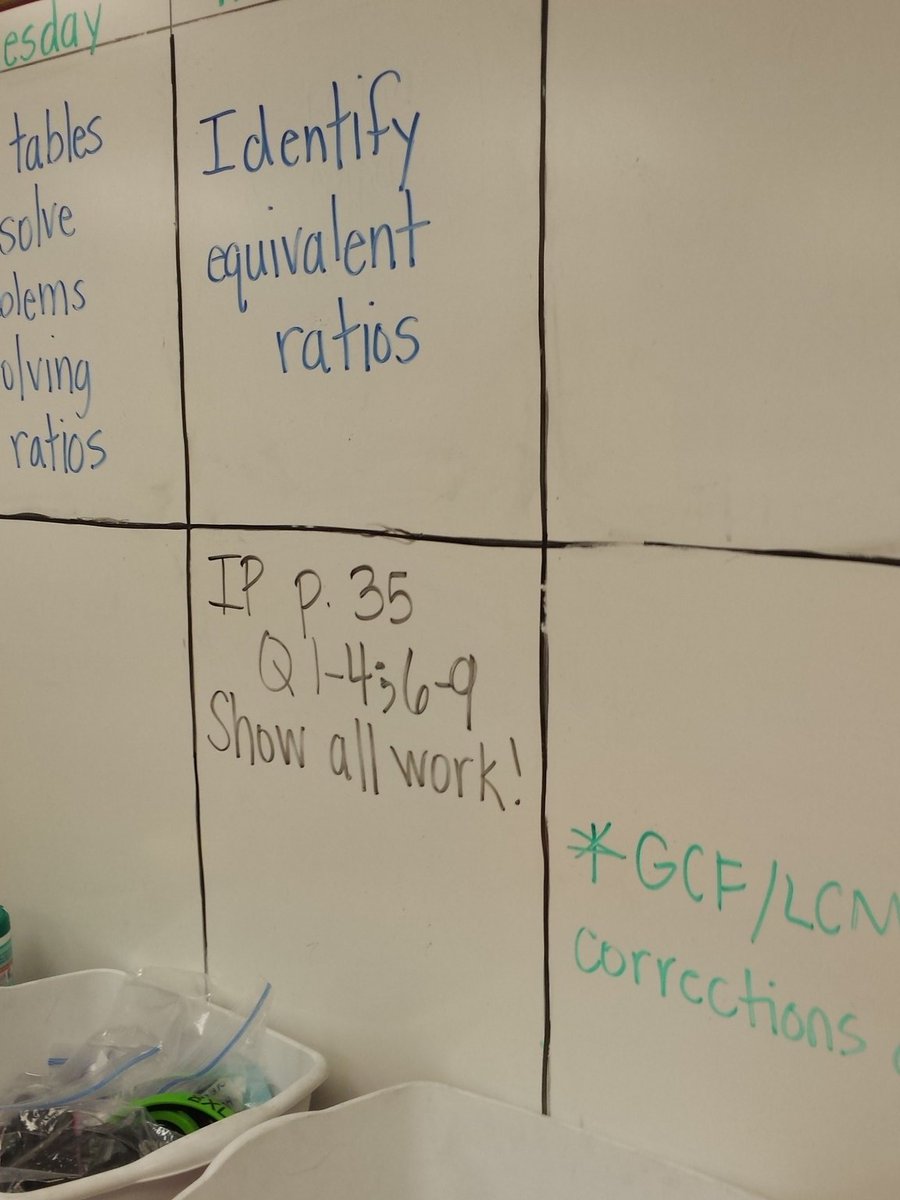 esday
tables
solve
olems
olving
ratios
Identify
equivalent
ratios
IP p. 35
Q 1-4; 6-9
Show all work!
*GCF/LCM
corrections